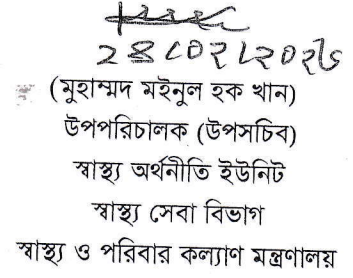 ২৪/০২/২০২৬
(মুহাম্মদ মইনুল হক খান)
উপপরিচালক (উপসচিব)
স্বাস্থ্য অর্থনীতি ইউনিট
স্বাস্থ্য সেবা বিভাগ
স্বাস্থ্য ও পরিবার কল্যাণ মন্ত্রণালয়